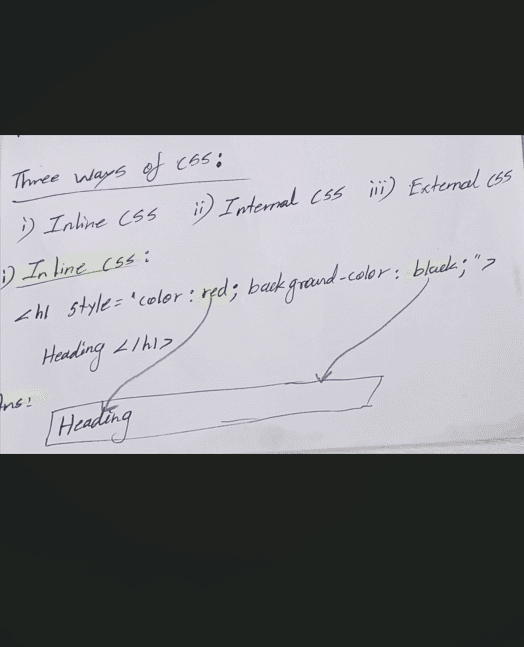 Three ways of CSS:
i) Inline CSS ii) Internal CSS iii) External CSS
i) Inline CSS:
<h1 style="color: red; background-color: black;">
Heading </h1>
Ans:
Heading